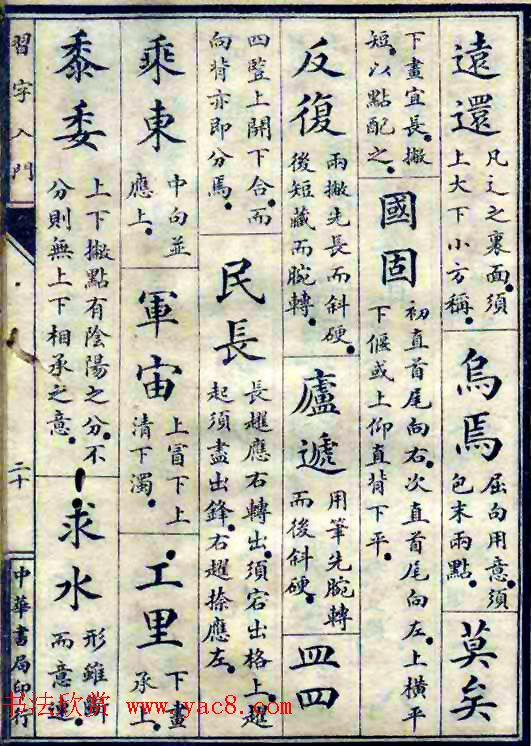 遠還
凡辶之裏面須
上大下小方稱
烏焉
屈勾用意須
包末兩點
莫矣
下畫宜長撇
短以點配之
國固
初直首尾向右次直首尾向左上橫平
下偃或上仰直背下平
反復
兩撇先長而斜硬
後短藏而腕轉
廬遞
用筆先腕轉
而後斜硬
皿四
四豎上開下合而
向背亦即分焉
民長
長趯應右轉出須宕出格上趯
起須盡出鋒右趯捺應左
乘東
中向並
應上
軍宙
上冒下上
清下濁
工里
下畫
承上
黍委
上下撇點有陰陽之分不
分則無上下相承之意
求水
形雖斷
而意連
習字入門
二十
中華書局印行
书法欣赏 www.yac8.com